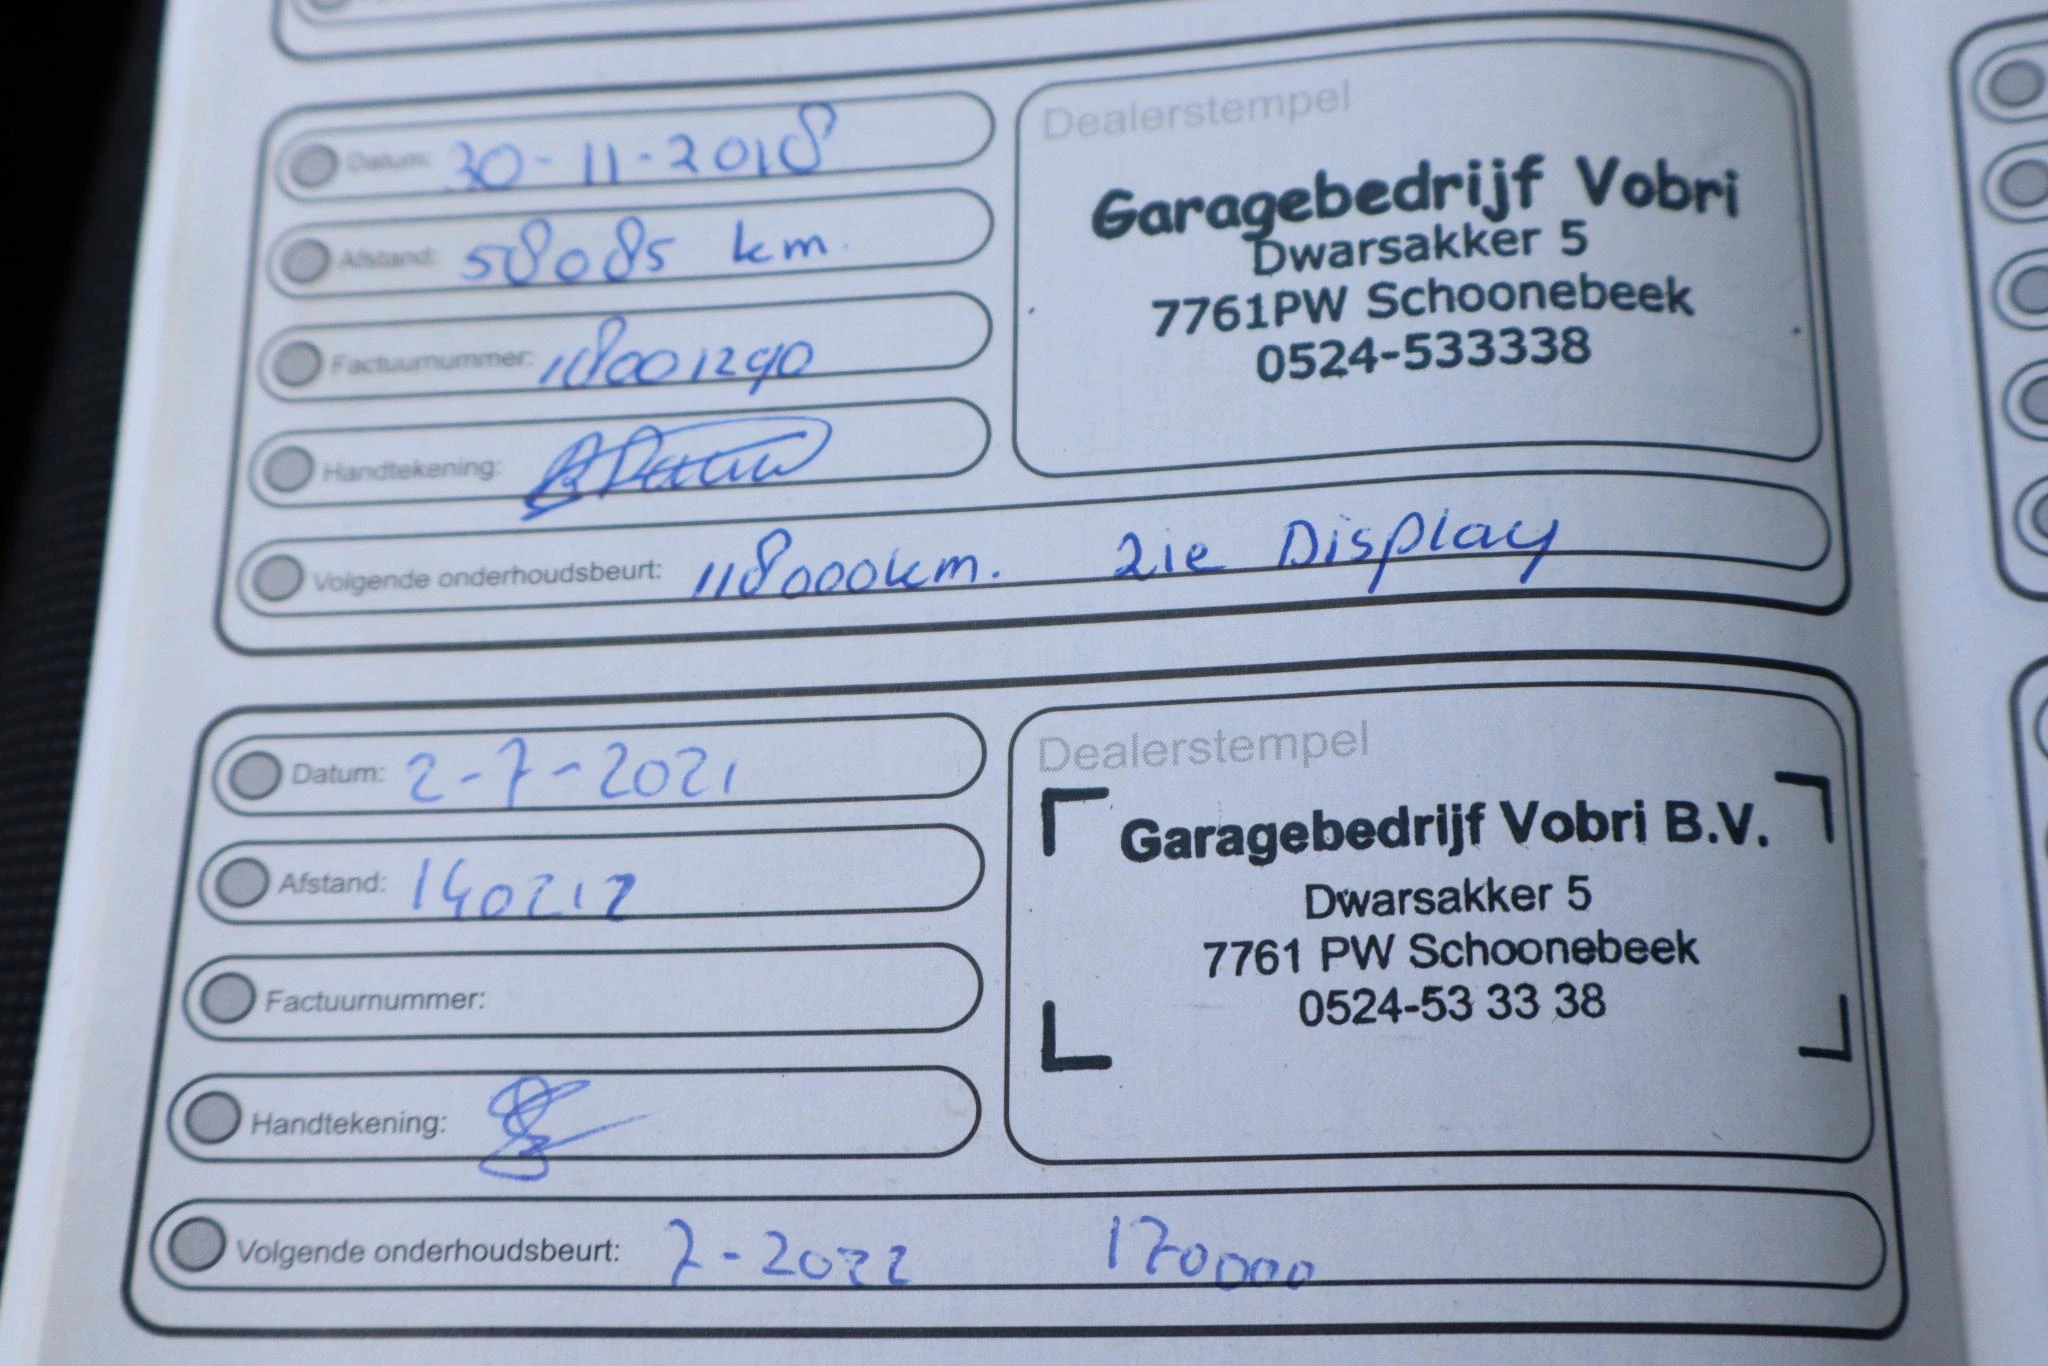 Datum: 30-11-2018
Afstand: 58085 km.
Factuurnummer: 118001290
Handtekening:
Dealerstempel
Garagebedrijf Vobri
Dwarsakker 5
7761PW Schoonebeek
0524-533338
Volgende onderhoudsbeurt: 118000km. zie Display
Datum: 2-7-2021
Afstand: 140212
Factuurnummer:
Handtekening:
Dealerstempel
Garagebedrijf Vobri B.V.
Dwarsakker 5
7761 PW Schoonebeek
0524-53 33 38
Volgende onderhoudsbeurt: 7-2022 170000